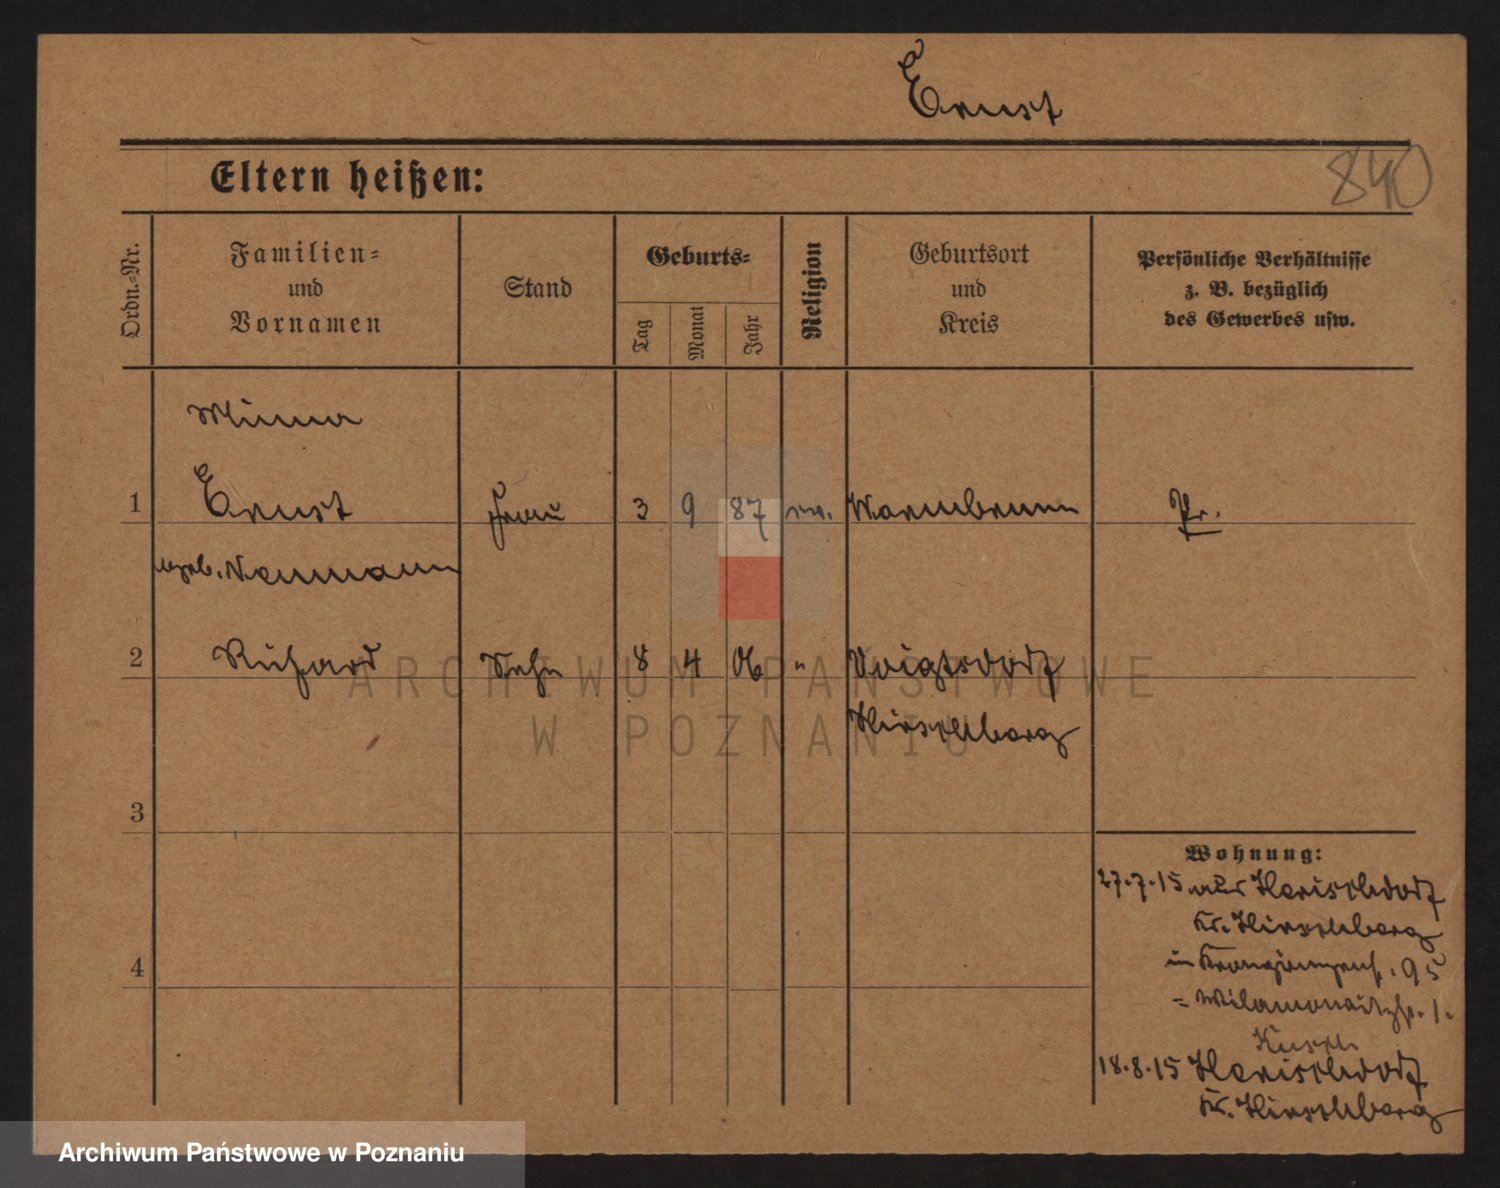 Ernst
840
Eltern heißen:
Ordn.-Nr.
Familien- und Vornamen
Stand
Geburts-
Tag
Monat
Jahr
Religion
Geburtsort und Kreis
Persönliche Verhältnisse z. B. bezüglich des Gewerbes usw.
Minna
1 Ernst Frau 3 9 87 ev. Warmbrunn Pr.
geb. Neumann
2 Richard Sohn 8 4 06 " Voigtsdorf
Hirschberg
3
Wohnung:
27.7.15 aus Herischdorf
Kr. Hirschberg
in Kronprinzenstr. 95
= Wilamowitzstr. 1.
4
18.8.15 Herischdorf
Kr. Hirschberg
ARCHIWUM PAŃSTWOWE
W POZNANIU
Archiwum Państwowe w Poznaniu